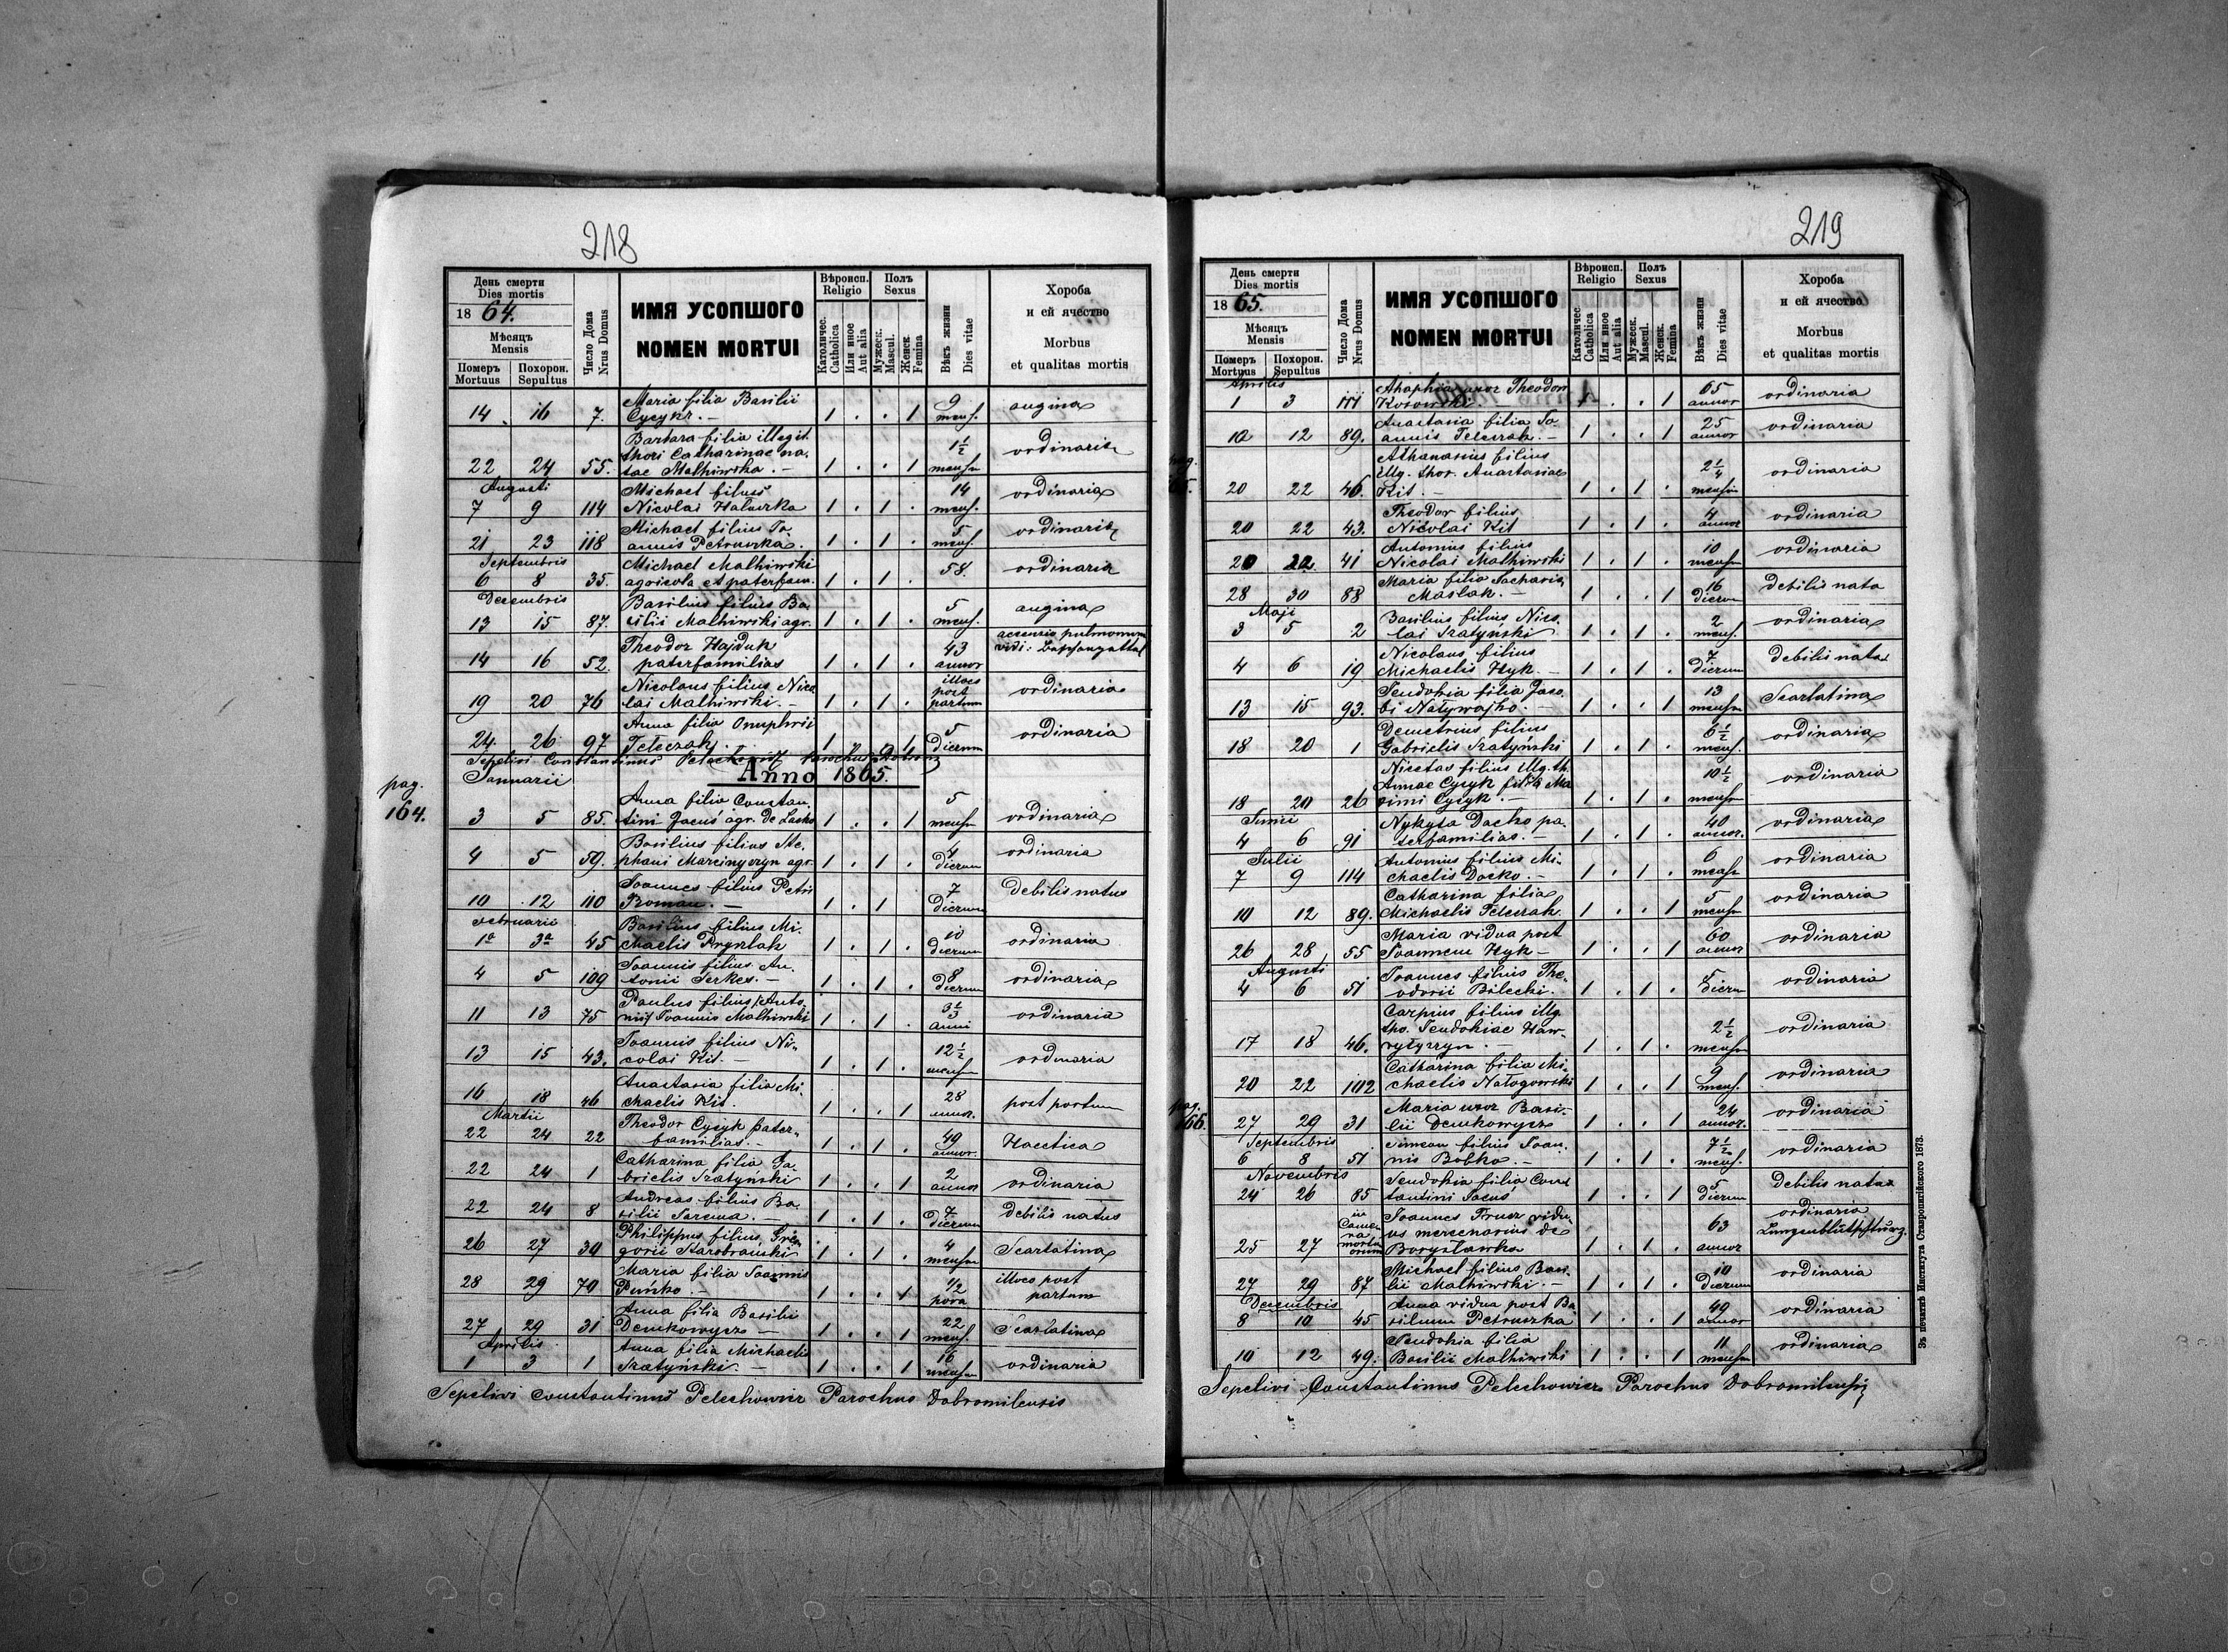 218
День смерти
Dies mortis
1864.
Мѣсяць
Mensis
Померъ
Mortuus
Похорон.
Sepultus
Число Дома
Nrus Domus
ИМЯ УСОПШОГО
NOMEN MORTUI
Вѣроисп.
Religio
Католичес.
Catholica
Или иное
Aut alia
Полъ
Sexus
Мужеск.
Mascul.
Женск.
Femina
Вѣкъ жизни
Dies vitae
Хороба
и ей ячество
Morbus
et qualitas mortis
Maria filia Basilii
14 16 7. Cycyk. — 1 . . 1 9 mens. angina
Barbara filia illegit.
thori Catharinae na-
22 24 55. tae Malhiwska. — 1 . . 1 1½ mensu ordinaria
Augusti
Michael filius
7 9 114 Nicolai 1 . 1 . 14 mens. ordinaria
Michael filius Jo
21 23 118 annis Petruszka. 1 . 1 . 5 mens. ordinaria
Septembris
Michael Malhiwski
6 8 35. agricola et paterfam. 1 . 1 . 58. ordinaria
Decembris
Basilius filius Ba
13 15 87. silii Malhiwski agr. 1 . 1 . 5 mens. angina
Theodor Hajduk
14 16 52. paterfamilias 1 . 1 . 43 annor pulmonum
Nicolaus filius Nico
19 20 76 lai Malhiwski. — 1 . 1 . illoco post partum ordinaria
Anna filia Onuphrii
24. 26 97 Teleczak 1 . . 1 5 Dierum ordinaria
Sepelivi Constantinus Pelechowicz Parochus
Anno 1865.
Januarii
pag.
164.
Anna filia Constan
3 5 85. tini Jacuś agr. de Lacko 1 . . 1 5 mensu ordinaria
Basilius filius Ste
4 5 59. phani Marcinyszyn agr. 1 . 1 . 4 Dierum ordinaria
Joannes filius Petri
10 12 110 Roman. — 1 . 1 7 Dierum Debilis natus
Februarii
Basilius filius Mi-
1ª 3ª 45 chaelis Pryszlak 1 . 1 . 10 dierum ordinaria
Joannis filius An-
4 5 109 tonii Serkes. — 1 . 1 . 8 Dierum ordinaria
Paulus filius Anto
11 13 75 nii Joannis Malhiwski 1 . 1 . anni ordinaria
Joannis filius Ni-
13 15 43. colai Kit. — 1 . 1 . 12½ mensu ordinaria
Anastasia filia Mi-
16 18 46 chaelis Kit. 1 . . 1 28 annor. post partum
Martii
Theodor Cycyk pater-
22 24 22 familias. — 1 . 1 . 49 annor. Haectica
Catharina filia Ga-
22 24 1 brielis Szatyński 1 . . 1 2 annor ordinaria
Andreas filius Ba-
22 24 8 silii Sarema. — 1 . 1 . 7 Dierum Debilis natus
Philippus filius Gre
26 27 30 gorii Starobrański 1 . 1 . 4 mensu Scarlatina
Maria filia Joannis
28 29 70 Puńko. — 1 . . 1 1/2 hora illoco post partum
Anna filia Basilii
27 29 31 Demkowycz — 1 . . 1 22 mens. Scarlatina
Aprilis
Anna filia Michaelis
1 3 1 Szatyński. — 1 . . 1 16 mensu ordinaria
Sepelivi Constantinus Pelechowicz Parochus Dobromilensis
219
День смерти
Dies mortis
1865.
Мѣсяць
Mensis
Померъ
Mortuus
Похорон.
Sepultus
Число Дома
Nrus Domus
ИМЯ УСОПШОГО
NOMEN MORTUI
Вѣроисп.
Religio
Католичес
Catholica
Или иное
Aut alia
Полъ
Sexus
Мужеск.
Mascul.
Женск.
Femina
Вѣкъ жизни
Dies vitae
Хороба
и ей ячество
Morbus
et qualitas mortis
Aprilis
Ahaphia uxor Theodori
1 3 111 Kosowski. 1 . . 1 65 annor ordinaria
Anastasia filia Jo
10 12 89. annis Teleczak. — 1 . . 1 25 annor ordinaria
Athanasius filius
illg. thor. Anastasiae
20 22 46. Kit. — 1 . 1 . 2¼ mensiu ordinaria
Theodor filius
20 22 43. Nicolai Kit 1 . 1 . 4 annor ordinaria
Antonius filius
20 22. 41 Nicolai Malhiwski 1 . 1 . 10 mensu ordinaria
Maria filia Zachariae
28 30 88 Maslak. — 1 . . 1 16 Dierum debilis nata
Maji
Basilius filius Nico
3 5 2 lai Szatyński 1 . 1 . 2 mens. ordinaria
Nicolaus filius
4 6 19 Michaelis Hyk — 1 . 1 . 7 Dierum debilis natus
Eudokia filia Jaco
13 15 93. bi Nalywajko. — 1 . . 1 13 mensu Scarlatina
Demetrius filius
18 20 1 Gabrielis Szatyński 1 . 1 . 6½ mens. ordinaria
Nicetas filius illg. th.
Annae Cycyk filia Ma
18 20 26 ximi Cycyk. — 1 . 1 . 10½ mensu ordinaria
Junii
Nykyta Dacko pa-
4 6 91 terfamilias. — 1 . 1 . 40 annor. ordinaria
Julii
Antonius filius Mi-
7 9 114 chaelis Dacko. — 1 . 1 . 6 mensu ordinaria
Catharina filia
10 12 89. Michaelis Teleczak 1 . . 1 5 mensu ordinaria
Maria vidua post
26 28 55 Joannem Hyk — 1 . . 1 60 annor ordinaria
Augusti
Joannes filius The-
4 6 51 odorii Bilecki. 1 . 1 . 5 dieru ordinaria
Carpius filius illg.
tho. Eudokiae Haw-
17 18 46. ryłyszyn. — 1 . 1 . 2½ mensu ordinaria
Catharina filia Mi-
20 22 102 chaelis Nalogowski 1 . . 1 9 mens. ordinaria
pag.
166.
Maria uxor Basi-
27 29 31 lii Demkowycz 1 . . 1 24 annor. ordinaria
Septembris
Simeon filius Joan-
6 8 51 nis Bobko. — 1 . 1 . 7½ mens. ordinaria
Novembris
Eudokia filia Cons
24 26 85 tantini Jacuś 1 . . 1 5 Dierum Debilis nata
in Camera mortuorum
Joannes Frusz vidu-
us mercenarius de
25 27 Borysławka 1 . 1 63 annor ordinaria
Michael filius Basi-
27 29 87 lii Malhiwski. — 1 . 1 . 10 Dierum ordinaria
Decembris
Anna vidua post Ba
8 10 45 silium Petruszka 1 . . 1 49 annor ordinaria
Eudokia filia
10 12 49. Basilii Malhiwski 1 . . 1 11 mensu ordinaria
Sepelivi Constantinus Pelechowicz Parochus Dobromilensis
Зъ печатнѣ Института Ставропигійского 1873.